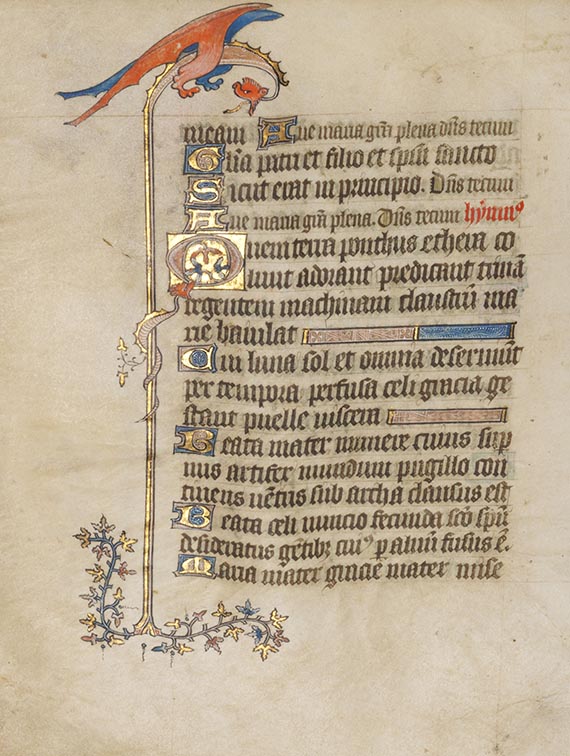 meam Aue maria gra plena dns tecum
Glia patri et filio et spui sancto
Sicut erat in principio. Dns tecum
Aue maria gra plena. Dns tecum hymnꝰ
Quem terra ponthus ethera co
lunt adorant predicant trinā
regentem machinam claustrū ma
rie baiulat
Cui luna sol et omnia deseruiūt
per tempora perfusa celi gracia ge
stant puelle uiscera
Beata mater munere cuius sup
nus artifex mundum pugillo con
tinens uētris sub archa clausus est
Beata celi nuncio fecunda sc̄o sp̄u
desideratus gētibꝫ cuiꝰ ꝑ aluū fusus ē.
Maria mater gracie mater mise